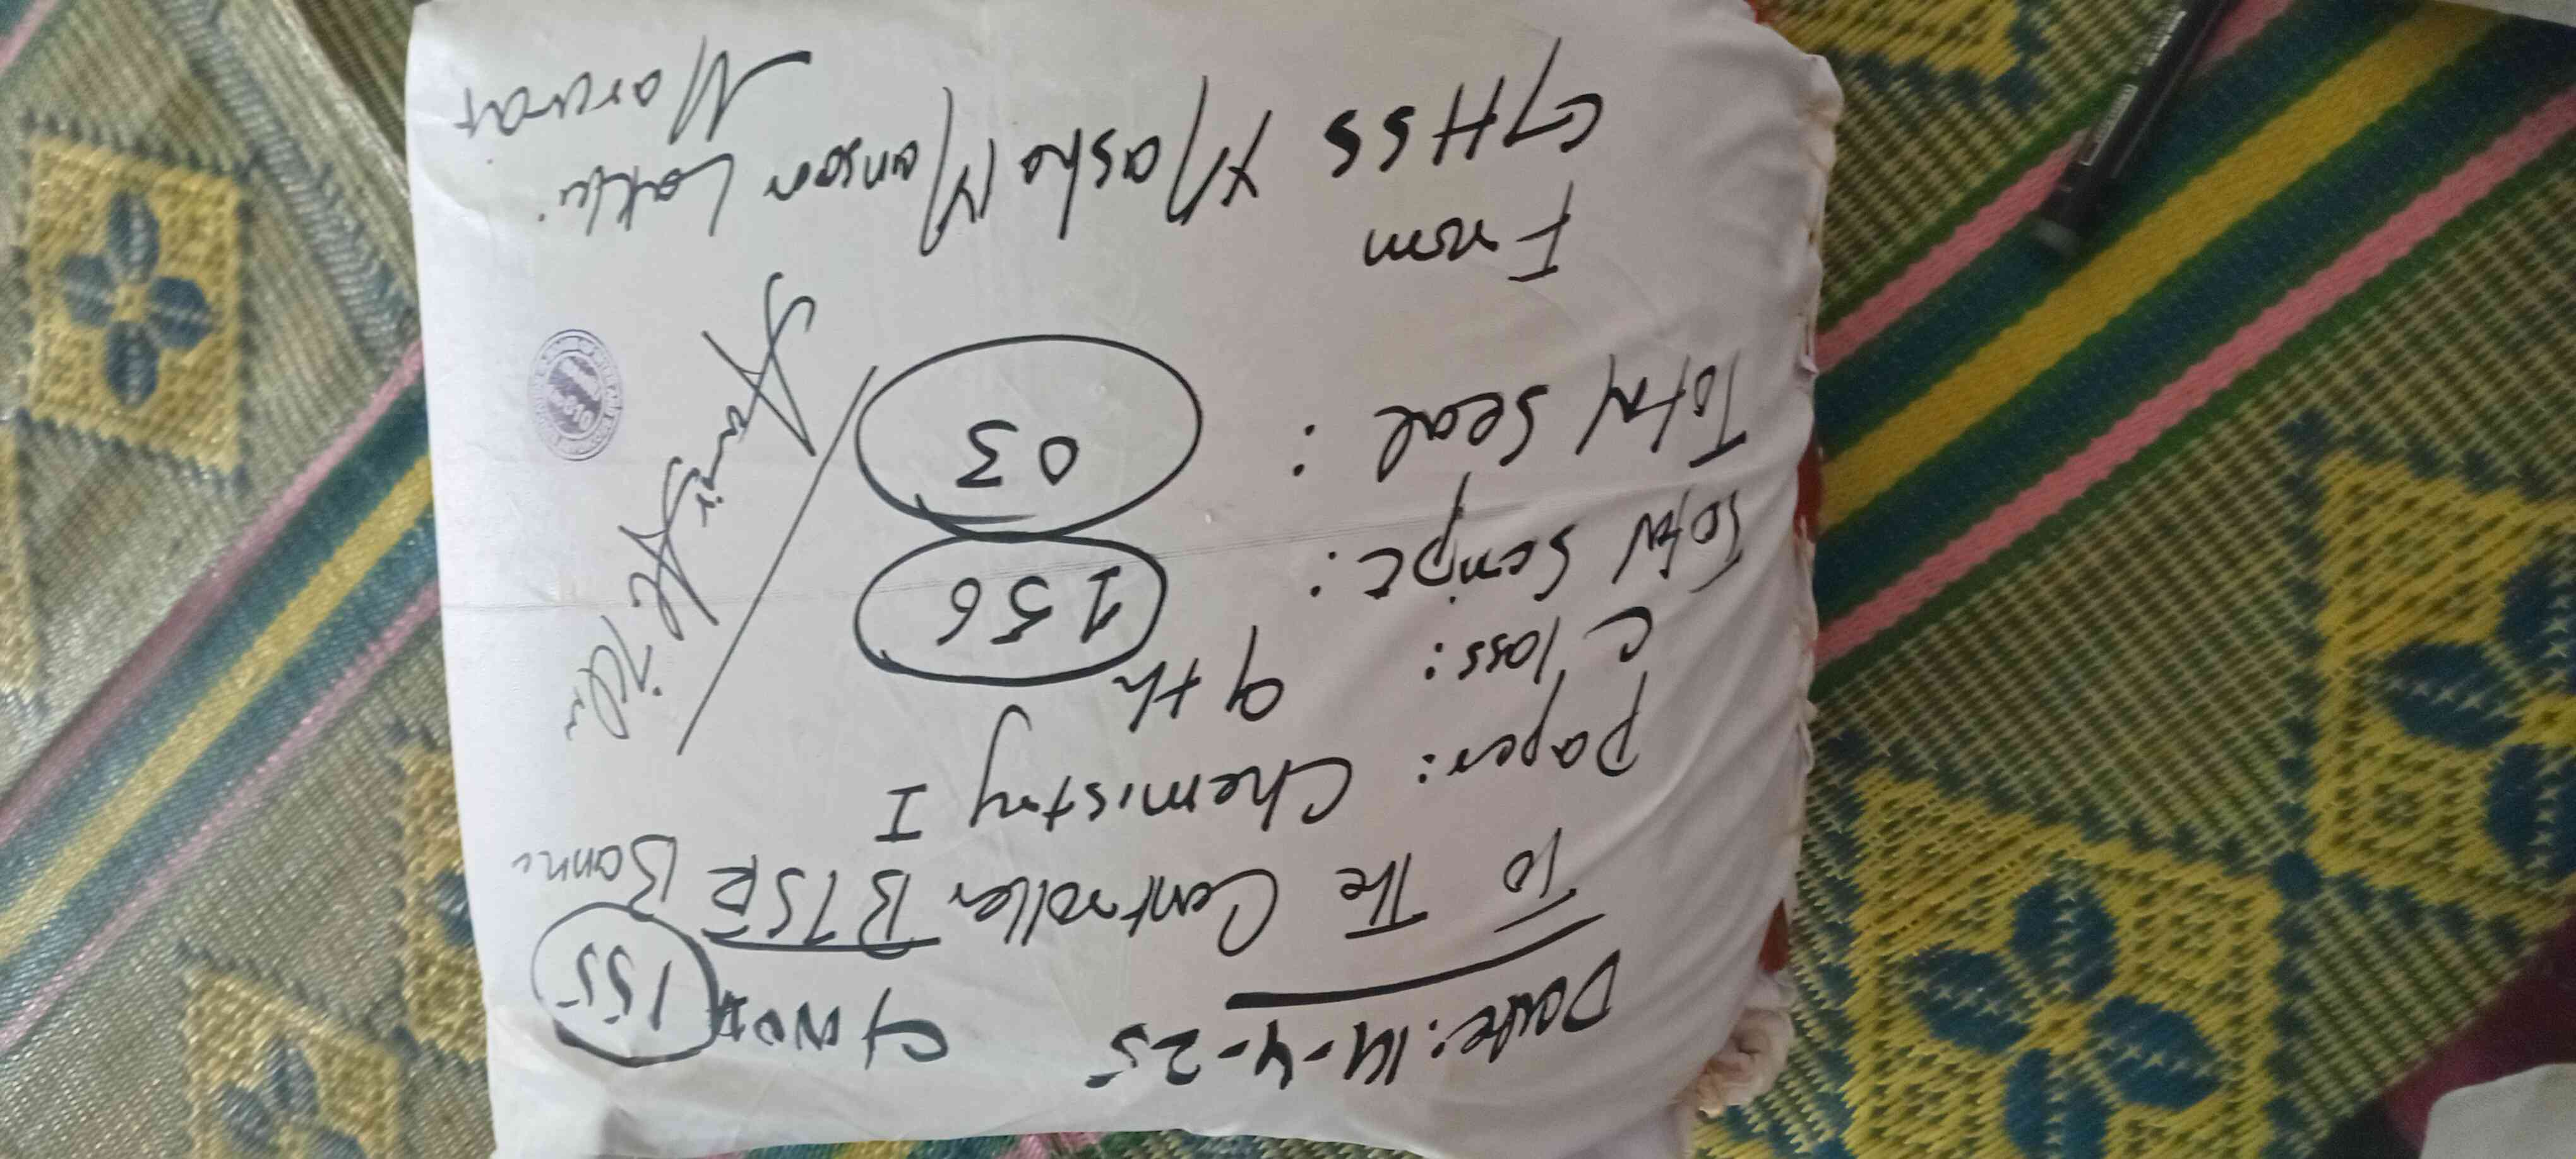 Date: 14-4-25
155
To The Controller BISE Bannu
Paper: Chemistry I
Class: 9th
Total Script: 156
Total Seal: 03
From
GHSS Masha Mansoor Lakki
Marwat